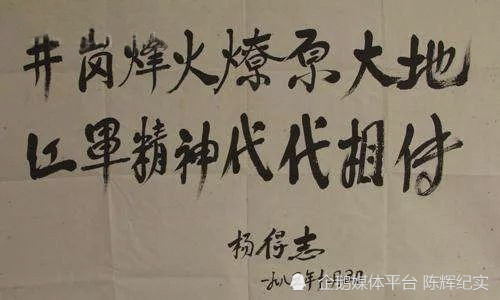 井岗烽火燎原大地
红軍精神代代相传
杨得志
一九八〇年
企鹅媒体平台 陈辉纪实